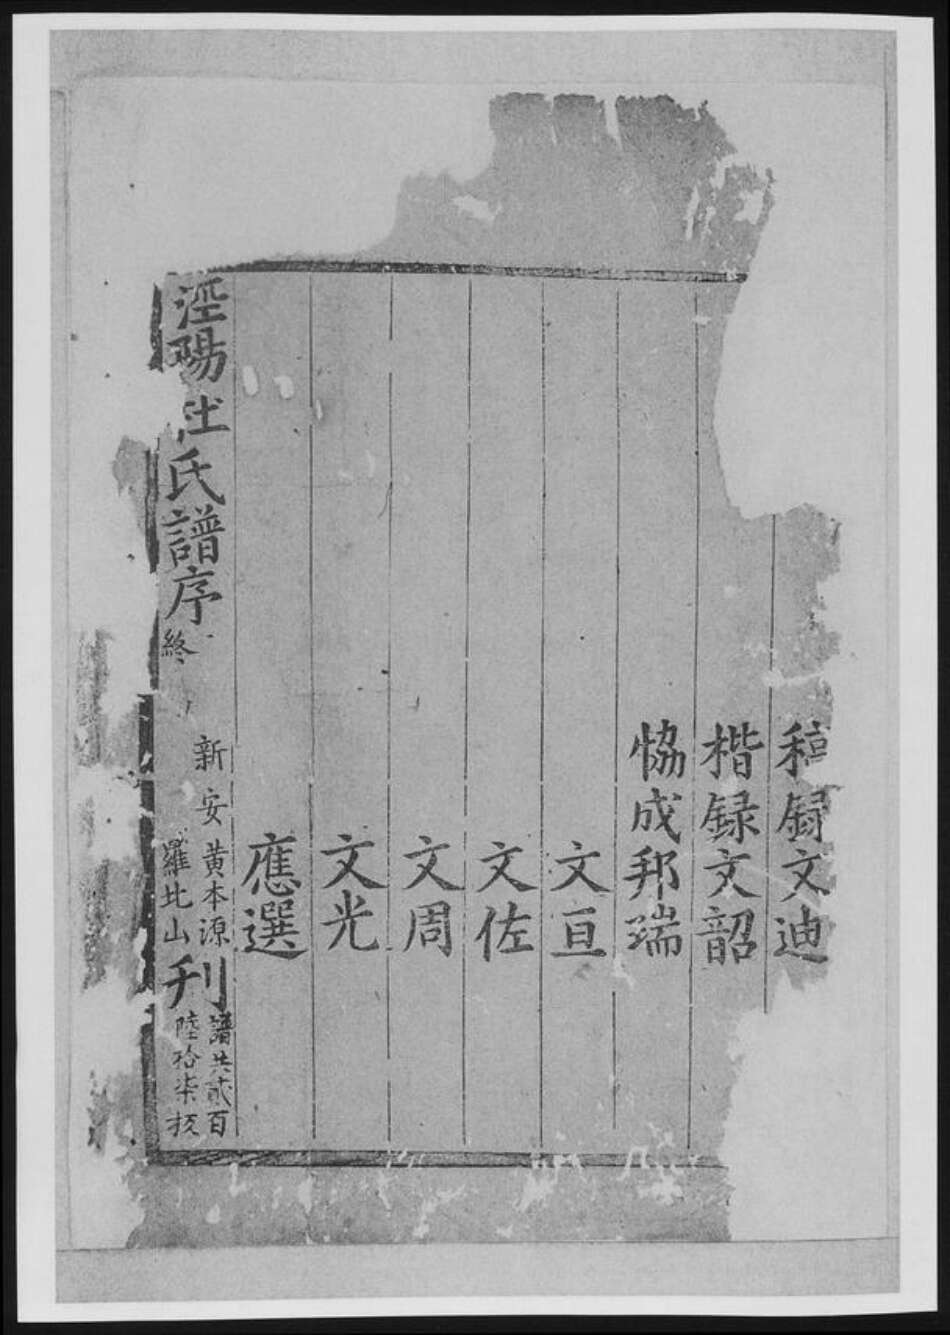 稿錄文迪
楷録文韶
恊成邦瑞
文亘
文佐
文周
文光
應選
涇陽杜氏譜序終
新安
黄本源
羅北山
刋
譜共貳百
陸拾柒板